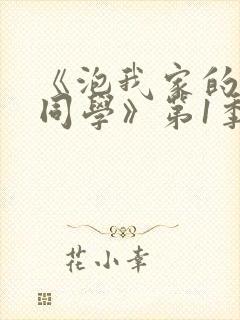 《泡我家的
同學》第1季
花小幸